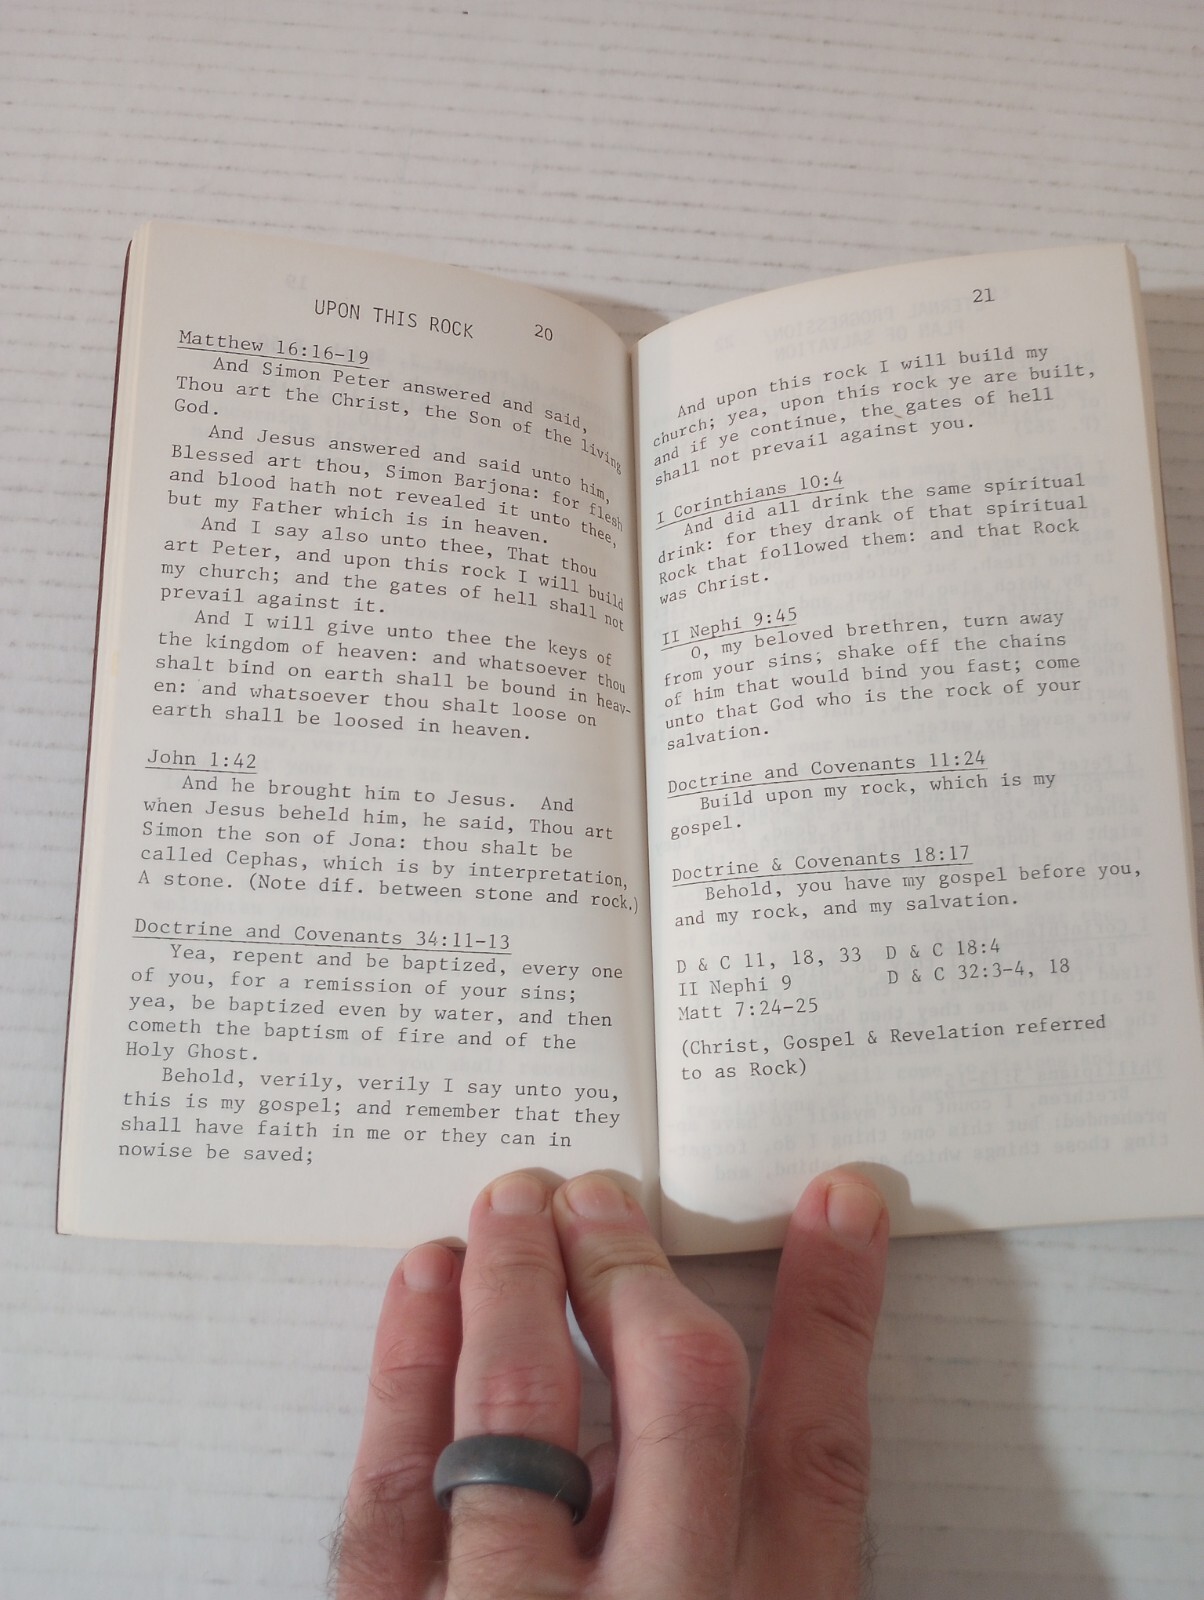 UPON THIS ROCK 20
Matthew 16:16-19
And Simon Peter answered and said,
Thou art the Christ, the Son of the living
God.
And Jesus answered and said unto him,
Blessed art thou, Simon Barjona: for flesh
and blood hath not revealed it unto thee,
but my Father which is in heaven.
And I say also unto thee, That thou
art Peter, and upon this rock I will build
my church; and the gates of hell shall not
prevail against it.
And I will give unto thee the keys of
the kingdom of heaven: and whatsoever thou
shalt bind on earth shall be bound in heav-
en: and whatsoever thou shalt loose on
earth shall be loosed in heaven.
John 1:42
And he brought him to Jesus. And
when Jesus beheld him, he said, Thou art
Simon the son of Jona: thou shalt be
called Cephas, which is by interpretation,
A stone. (Note dif. between stone and rock.)
Doctrine and Covenants 34:11-13
Yea, repent and be baptized, every one
of you, for a remission of your sins;
yea, be baptized even by water, and then
cometh the baptism of fire and of the
Holy Ghost.
Behold, verily, verily I say unto you,
this is my gospel; and remember that they
shall have faith in me or they can in
nowise be saved;
21
And upon this rock I will build my
church; yea, upon this rock ye are built,
and if ye continue, the gates of hell
shall not prevail against you.
I Corinthians 10:4
And did all drink the same spiritual
drink: for they drank of that spiritual
Rock that followed them: and that Rock
was Christ.
II Nephi 9:45
O, my beloved brethren, turn away
from your sins; shake off the chains
of him that would bind you fast; come
unto that God who is the rock of your
salvation.
Doctrine and Covenants 11:24
Build upon my rock, which is my
gospel.
Doctrine & Covenants 18:17
Behold, you have my gospel before you,
and my rock, and my salvation.
D & C 11, 18, 33 D & C 18:4
II Nephi 9 D & C 32:3-4, 18
Matt 7:24-25
(Christ, Gospel & Revelation referred
to as Rock)